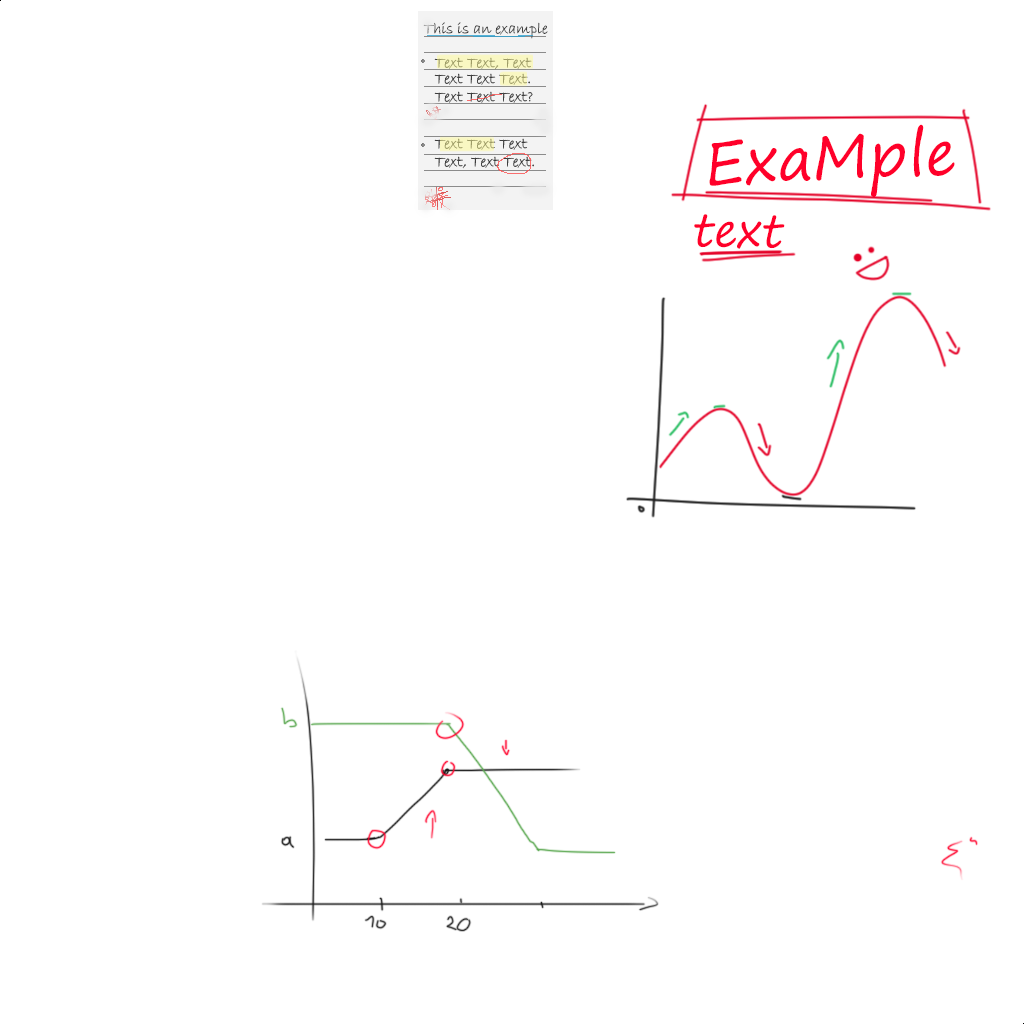 This is an example
Text Text, Text
Text Text Text.
Text Text Text?
Text Text Text
Text, Text Text.
ExaMple
text
0
b
a
10
20